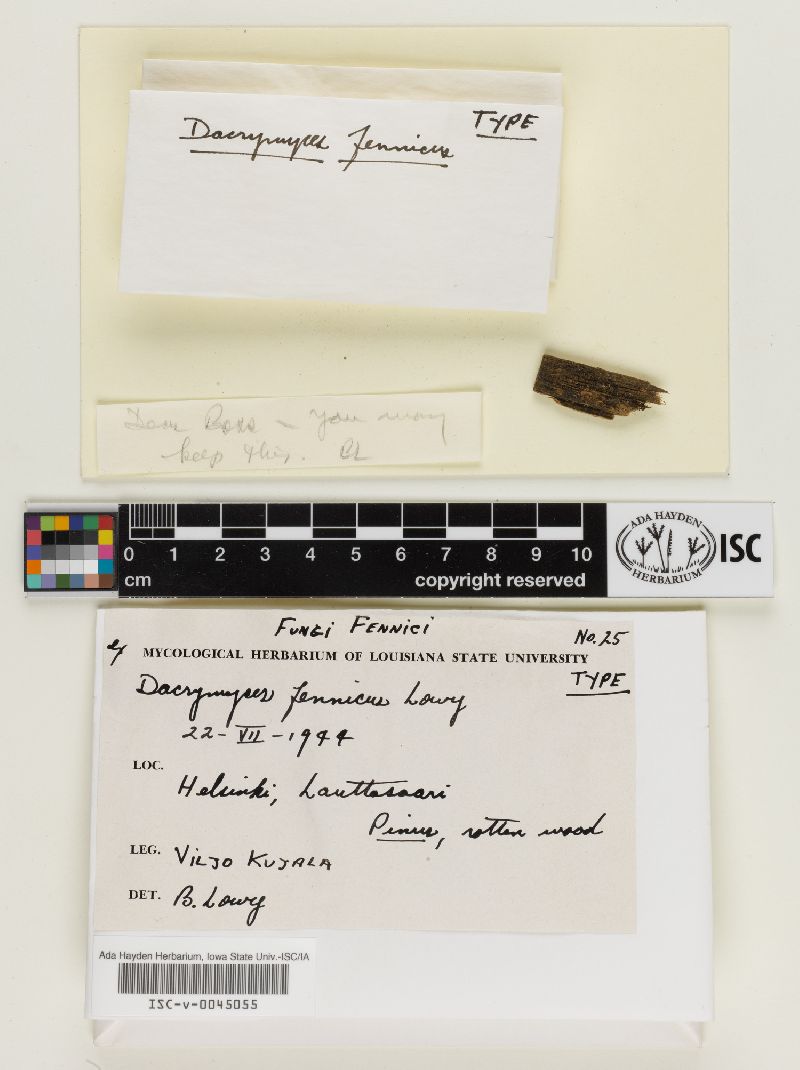 TYPE
Dacrymyces fennicus
Dear Ross - You may
keep this. BL
0 1 2 3 4 5 6 7 8 9 10
cm
copyright reserved
ADA HAYDEN
HERBARIUM
ISC
FUNGI FENNICI
No. 25
ex
MYCOLOGICAL HERBARIUM OF LOUISIANA STATE UNIVERSITY
TYPE
Dacrymyces fennicus Lowy
22-VII-1944
LOC.
Helsinki, Lauttasaari
Pinus, rotten wood
LEG. VILJO KUJALA
DET. B. Lowy
Ada Hayden Herbarium, Iowa State Univ.-ISC/IA
ISC-v-0045055